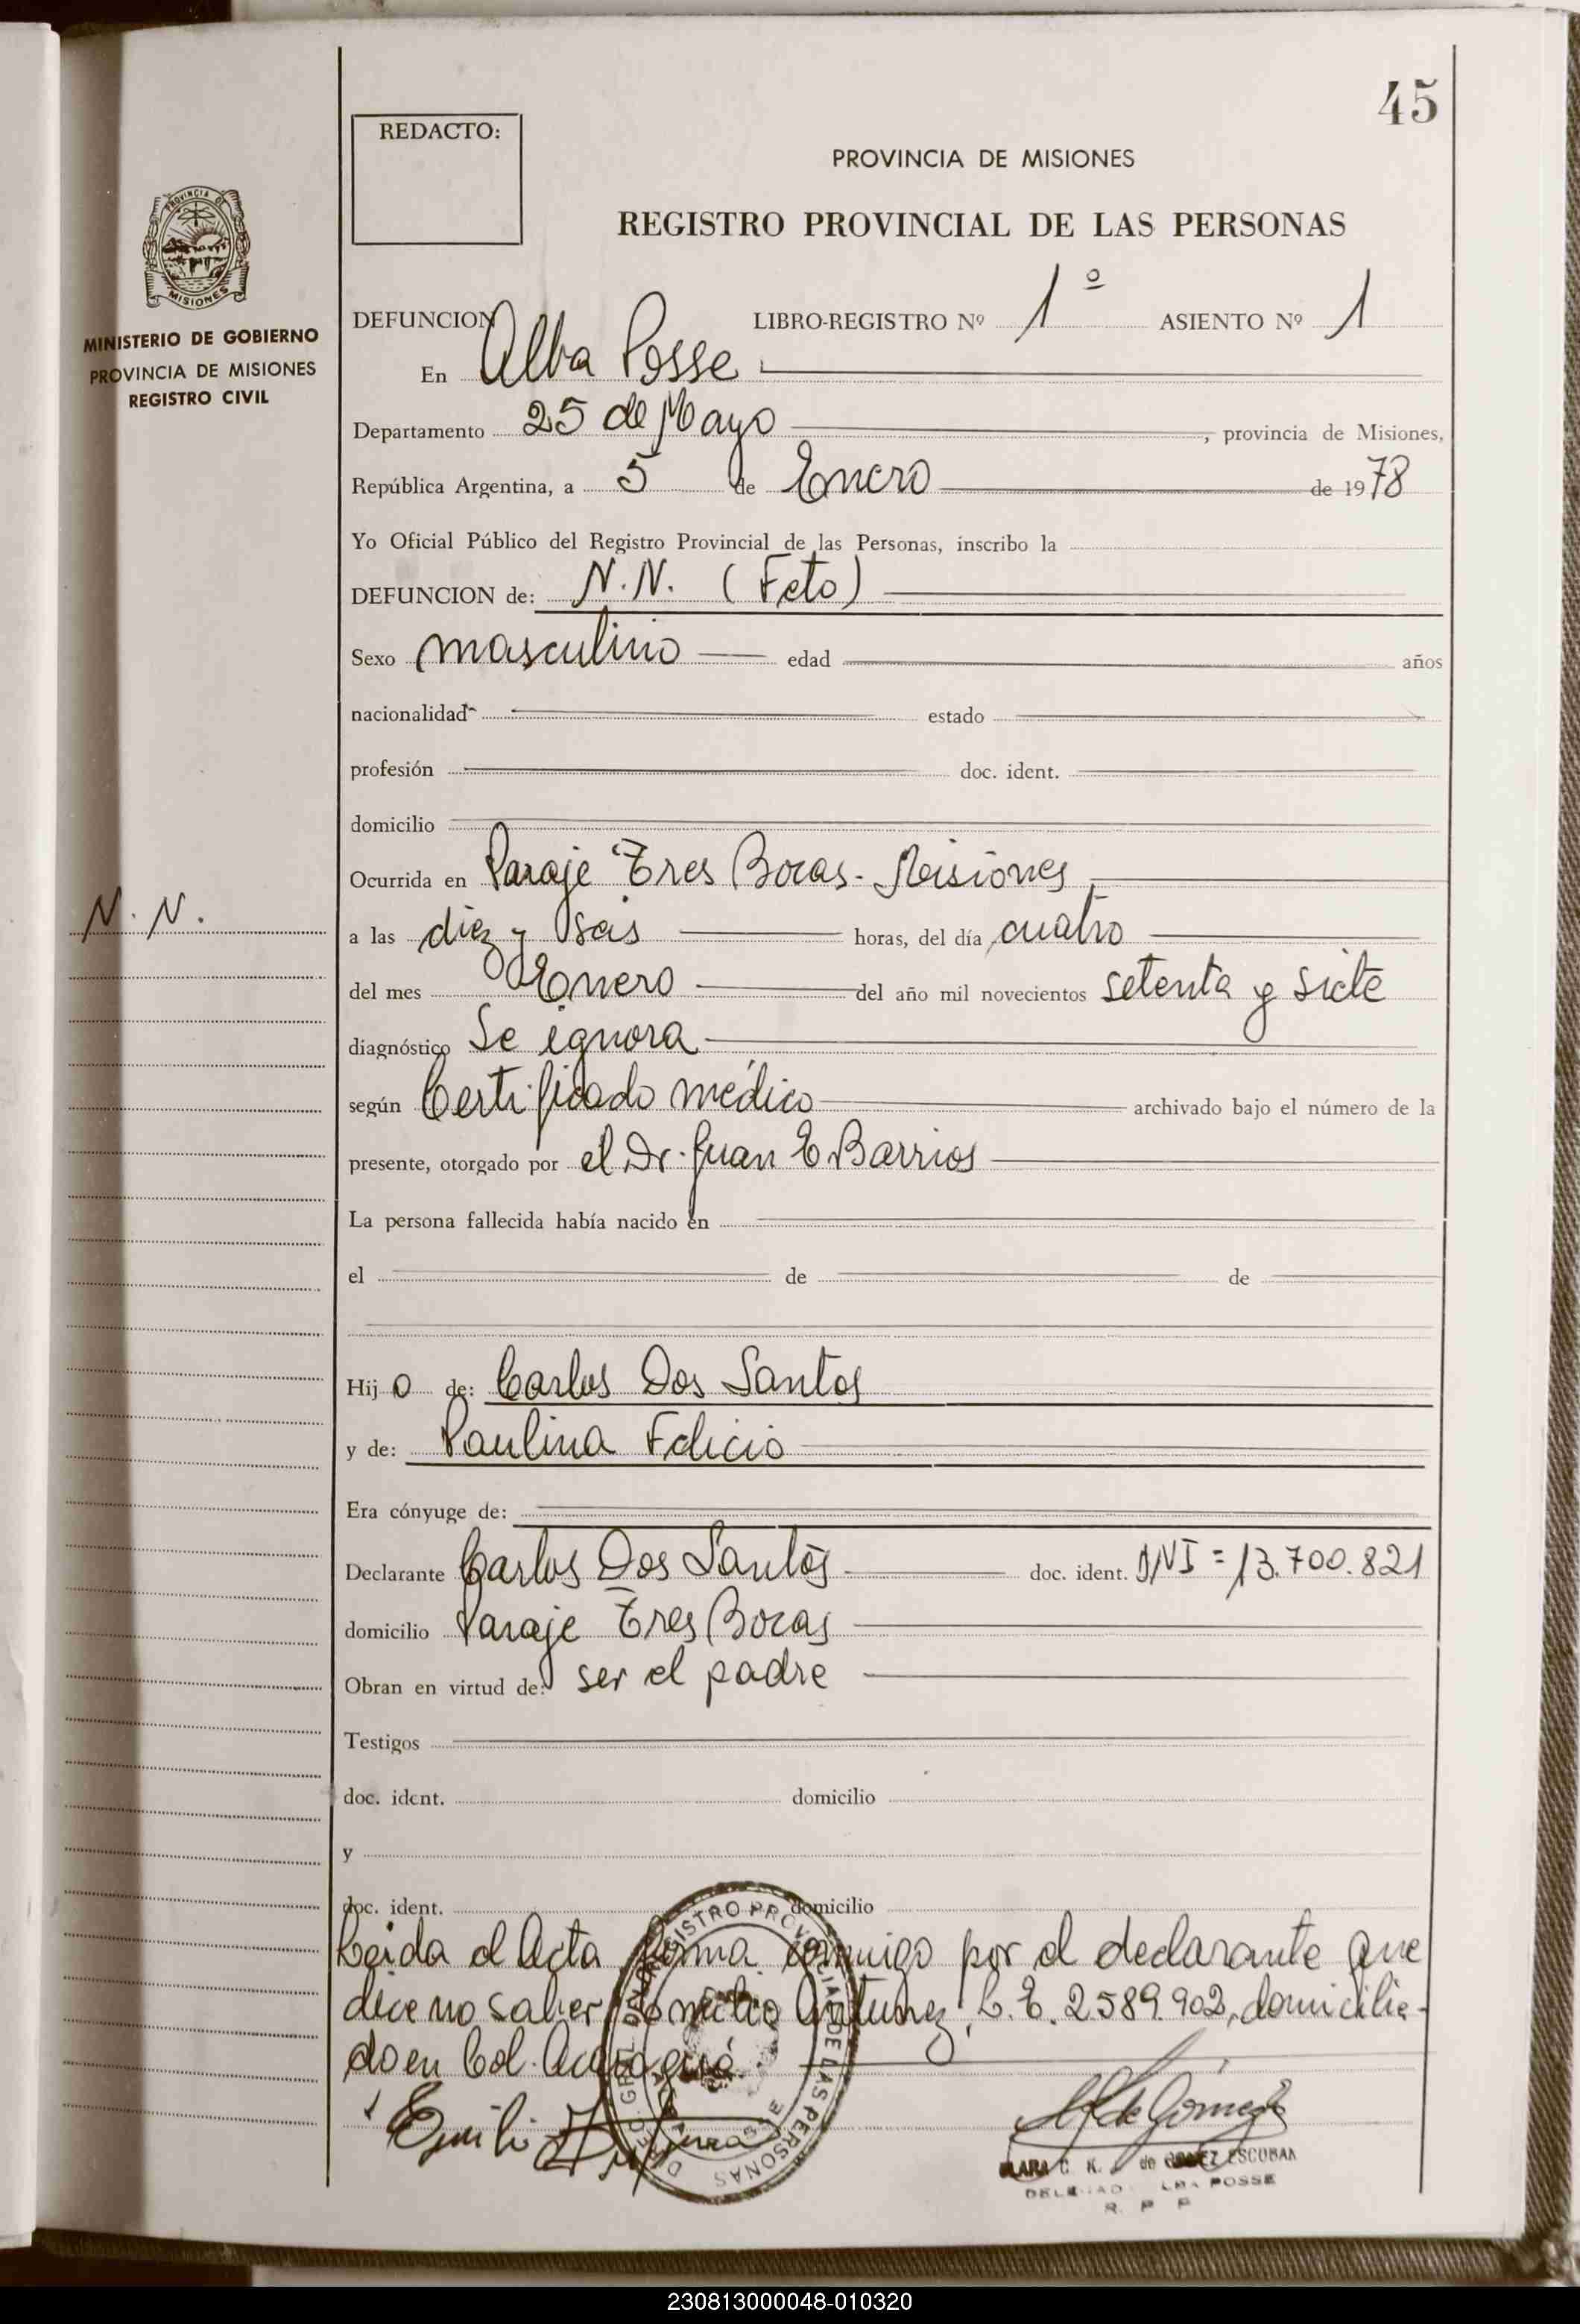 45
REDACTO:
PROVINCIA DE MISIONES
REGISTRO PROVINCIAL DE LAS PERSONAS
PROVINCIA DE
MISIONES
MINISTERIO DE GOBIERNO
PROVINCIA DE MISIONES
REGISTRO CIVIL
DEFUNCION LIBRO-REGISTRO Nº 1º ASIENTO Nº 1
En Alba Posse
Departamento 25 de Mayo, provincia de Misiones,
República Argentina, a 5 de Enero de 1978
Yo Oficial Público del Registro Provincial de las Personas, inscribo la
DEFUNCION de: N.N. (Feto)
Sexo masculino edad años
nacionalidad estado
profesión doc. ident.
domicilio
Ocurrida en Paraje Tres Bocas - Misiones
N. N.
a las diez y seis horas, del día cuatro
del mes Enero del año mil novecientos setenta y siete
diagnóstico Se ignora
según Certificado médico archivado bajo el número de la
presente, otorgado por el Dr. Juan E Barrios
La persona fallecida había nacido en
el de de
Hijo de: Carlos Dos Santos
y de: Paulina Felicio
Era cónyuge de:
Declarante Carlos Dos Santos doc. ident. DNI = 13.700.821
domicilio Paraje Tres Bocas
Obran en virtud de: ser el padre
Testigos
doc. ident. domicilio
y
doc. ident. domicilio
Leida el Acta firma conmigo por el declarante que
dice no saber Antunez, L.E. 2.589.902, domicilia-
do en Col.
REGISTRO PROVINCIAL DE LAS PERSONAS
de GOMEZ ESCOBAR
POSSE
R. P P
230813000048-010320